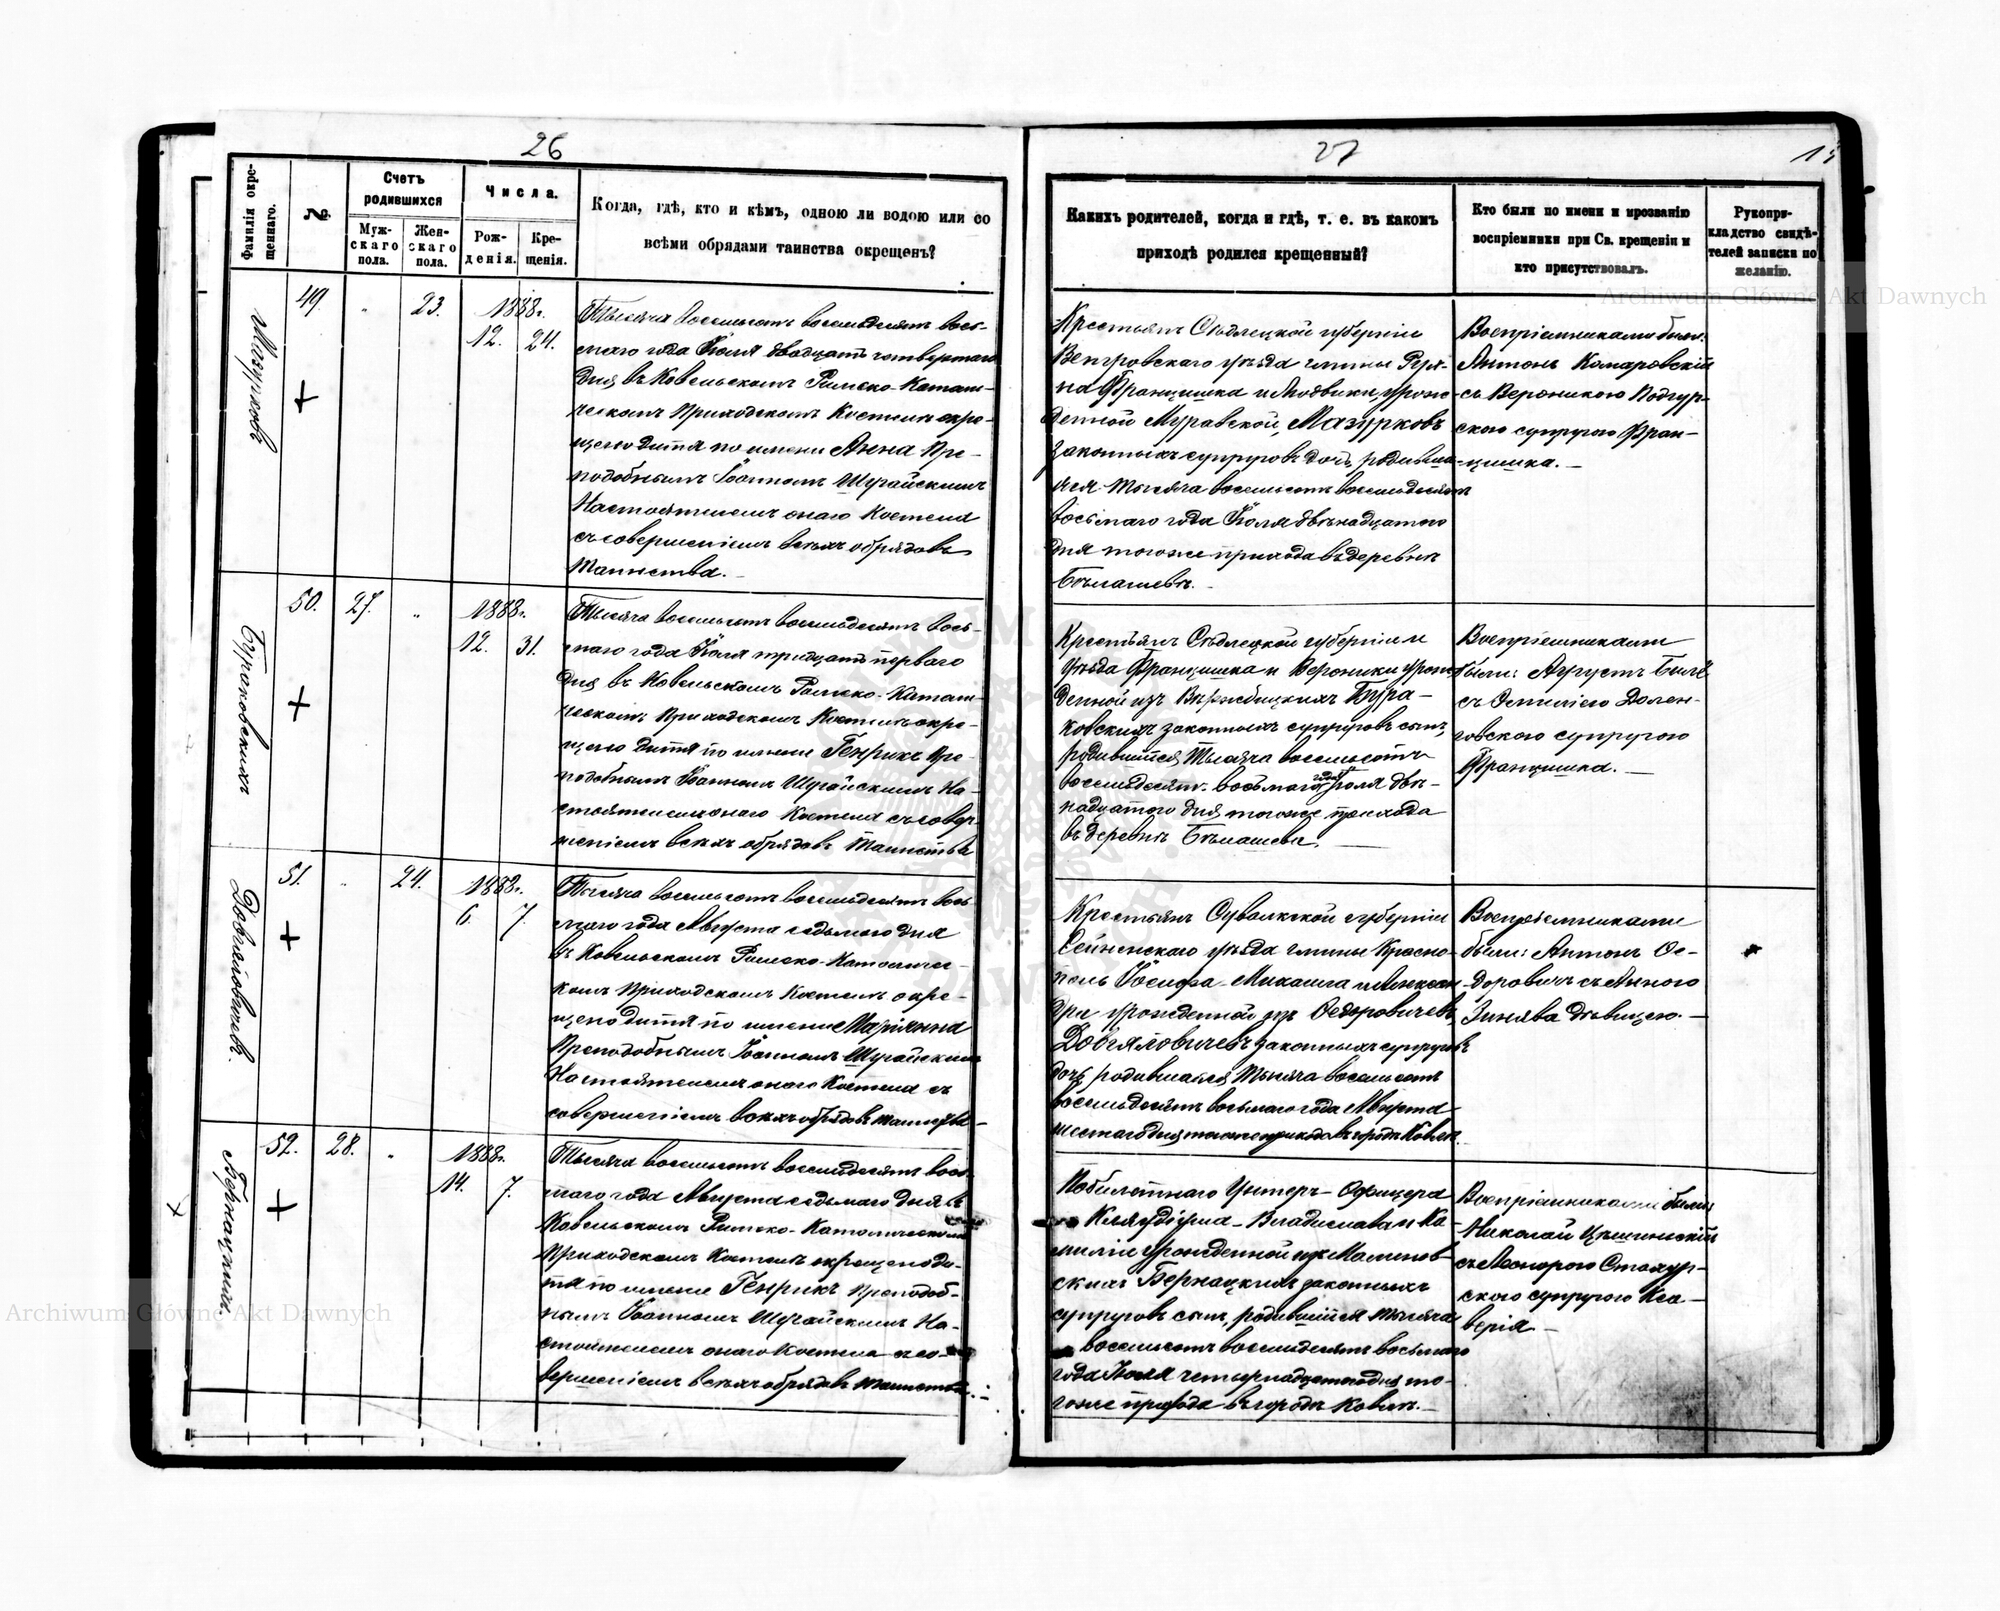 26
Фамилія окре-
щеннаго.
№
Счетъ
родившихся
Муж-
скаго
пола.
Жен-
скаго
пола.
Числа.
Рож-
денія.
Кре-
щенія.
Когда, гдѣ, кто и кѣмъ, одною ли водою или со
всѣми обрядами таинства окрещенъ?
Мазурковъ
49.
23.
1888г.
12. 24.
Тысяча восемьсотъ восемьдесятъ вось-
маго года Іюля двадцать четвертаго
дня въ Ковельскомъ Римско-Катали-
ческомъ Приходскомъ Костелѣ окре-
щено дитя по имени Анна Пре-
подобнымъ Іоанномъ Шурайскимъ
Настоятелемъ онаго Костела
съ совершеніемъ всѣхъ обрядовъ
Таинства.
Бураковскихъ
50.
27.
1888г.
12. 31.
Тысяча восемьсотъ восемьдесятъ вось-
маго года Іюля тридцать перваго
дня въ Ковельскомъ Римско-Катали-
ческомъ Приходскомъ Костелѣ окре-
щено дитя по имени Генрикъ Пре-
подобнымъ Іоанномъ Шурайскимъ На-
стоятелемъ онаго Костела съ совер-
шеніемъ всѣхъ обрядовъ Таинства
Довгяловичевъ
51.
24.
1888г.
6. 7.
Тысяча восемьсотъ восемьдесятъ вось-
маго года Августа седьмаго дня
въ Ковельскомъ Римско-Католичес-
комъ Приходскомъ Костелѣ окре-
щено дитя по имени Маріянна
Преподобнымъ Іоанномъ Шурайскимъ
Настоятелемъ онаго Костела съ
совершеніемъ всѣхъ обрядовъ таинства
Бернацкихъ.
52.
28.
1888г.
14. 7.
Тысяча восемьсотъ восемьдесятъ вось-
маго года Августа седьмаго дня въ
Ковельскомъ Римско-Католическомъ
Приходскомъ Костелѣ окрещено ди-
тя по имени Генрикъ Преподоб-
нымъ Іоанномъ Шурайскимъ На-
стоятелемъ онаго Костела съ со-
вершеніемъ всѣхъ обрядовъ таинства.
27
Какихъ родителей, когда и гдѣ, т. е. въ какомъ
приходѣ родился крещенный?
Кто были по имени и прозванію
воспріемники при Св. крещеніи и
кто присутствовалъ.
Рукопри-
кладство свидѣ-
телей записки по
желанію.
Крестьянъ Сѣдлецкой губерніи
Венгровскаго уѣзда гмины
Францишка и Людвики, урож-
денной Муравской, Мазурковъ
законныхъ супруговъ дочь, родивша-
яся тысяча восемьсотъ восемьдесятъ
восьмаго года Іюля двѣнадцатого
дня тогоже прихода въ деревнѣ
Бѣлашевѣ.
Воспріемниками были:
Антонъ Комаровскій
съ Вероникою Подгур-
скою супругою Фран-
цишка.
Крестьянъ Сѣдлецкой губерніи и
уѣзда Францишка и Вероники урож-
денной изъ Вержбицкихъ Бура-
ковскихъ законныхъ супруговъ сынъ,
родившійся тысяча восемьсотъ
восемьдесятъ восьмаго года Іюля двѣ-
надцатого дня тогоже прихода
въ деревнѣ Бѣлашевѣ.
Воспріемниками
были: Августъ
съ
супругою
Францишка.
Крестьянъ Сувалкской губерніи
Сейненскаго уѣзда гмины Красно-
поль Іосифа-Михаила и Алексан-
дры урожденной изъ Ѳедоровичевъ
Довгяловичевъ законныхъ супруговъ
дочь родившаяся тысяча восемьсотъ
восемьдесятъ восьмаго года Августа
шестаго дня тогоже прихода въ городѣ Ковлѣ.
Воспріемниками
были: Антонъ Ѳе-
доровичъ съ Анною
дѣвицею.
Унтеръ-Офицера
Клявдіуша-Владислава и Ка-
миліи урожденной изъ Малинов-
скихъ Бернацкихъ законныхъ
супруговъ сынъ, родившійся тысяча
восемьсотъ восемьдесятъ восьмаго
года Іюля четырнадцатого дня то-
гоже прихода въ городѣ Ковлѣ.
Воспріемниками были:
Николай
съ Леонорою
супругою Кса-
верія
Archiwum Główne Akt Dawnych
Archiwum Główne Akt Dawnych